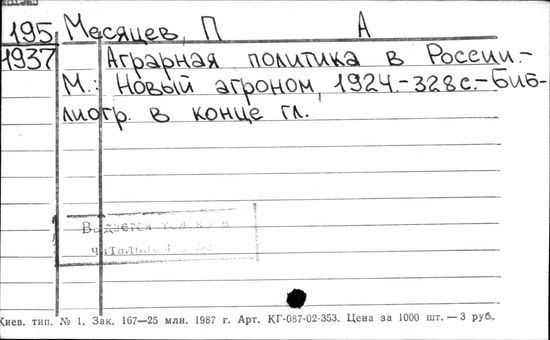 195 Месяцев, П А
1937 Аграрная политика в России.-
М.: Новый агроном, 1924.-328с.-Биб-
лиогр. в конце гл.
Выдается только в
читальный
Киев. тип. № 1. Зак. 167—25 млн. 1987 г. Арт. КГ-087-02-353. Цена за 1000 шт. — 3 руб.